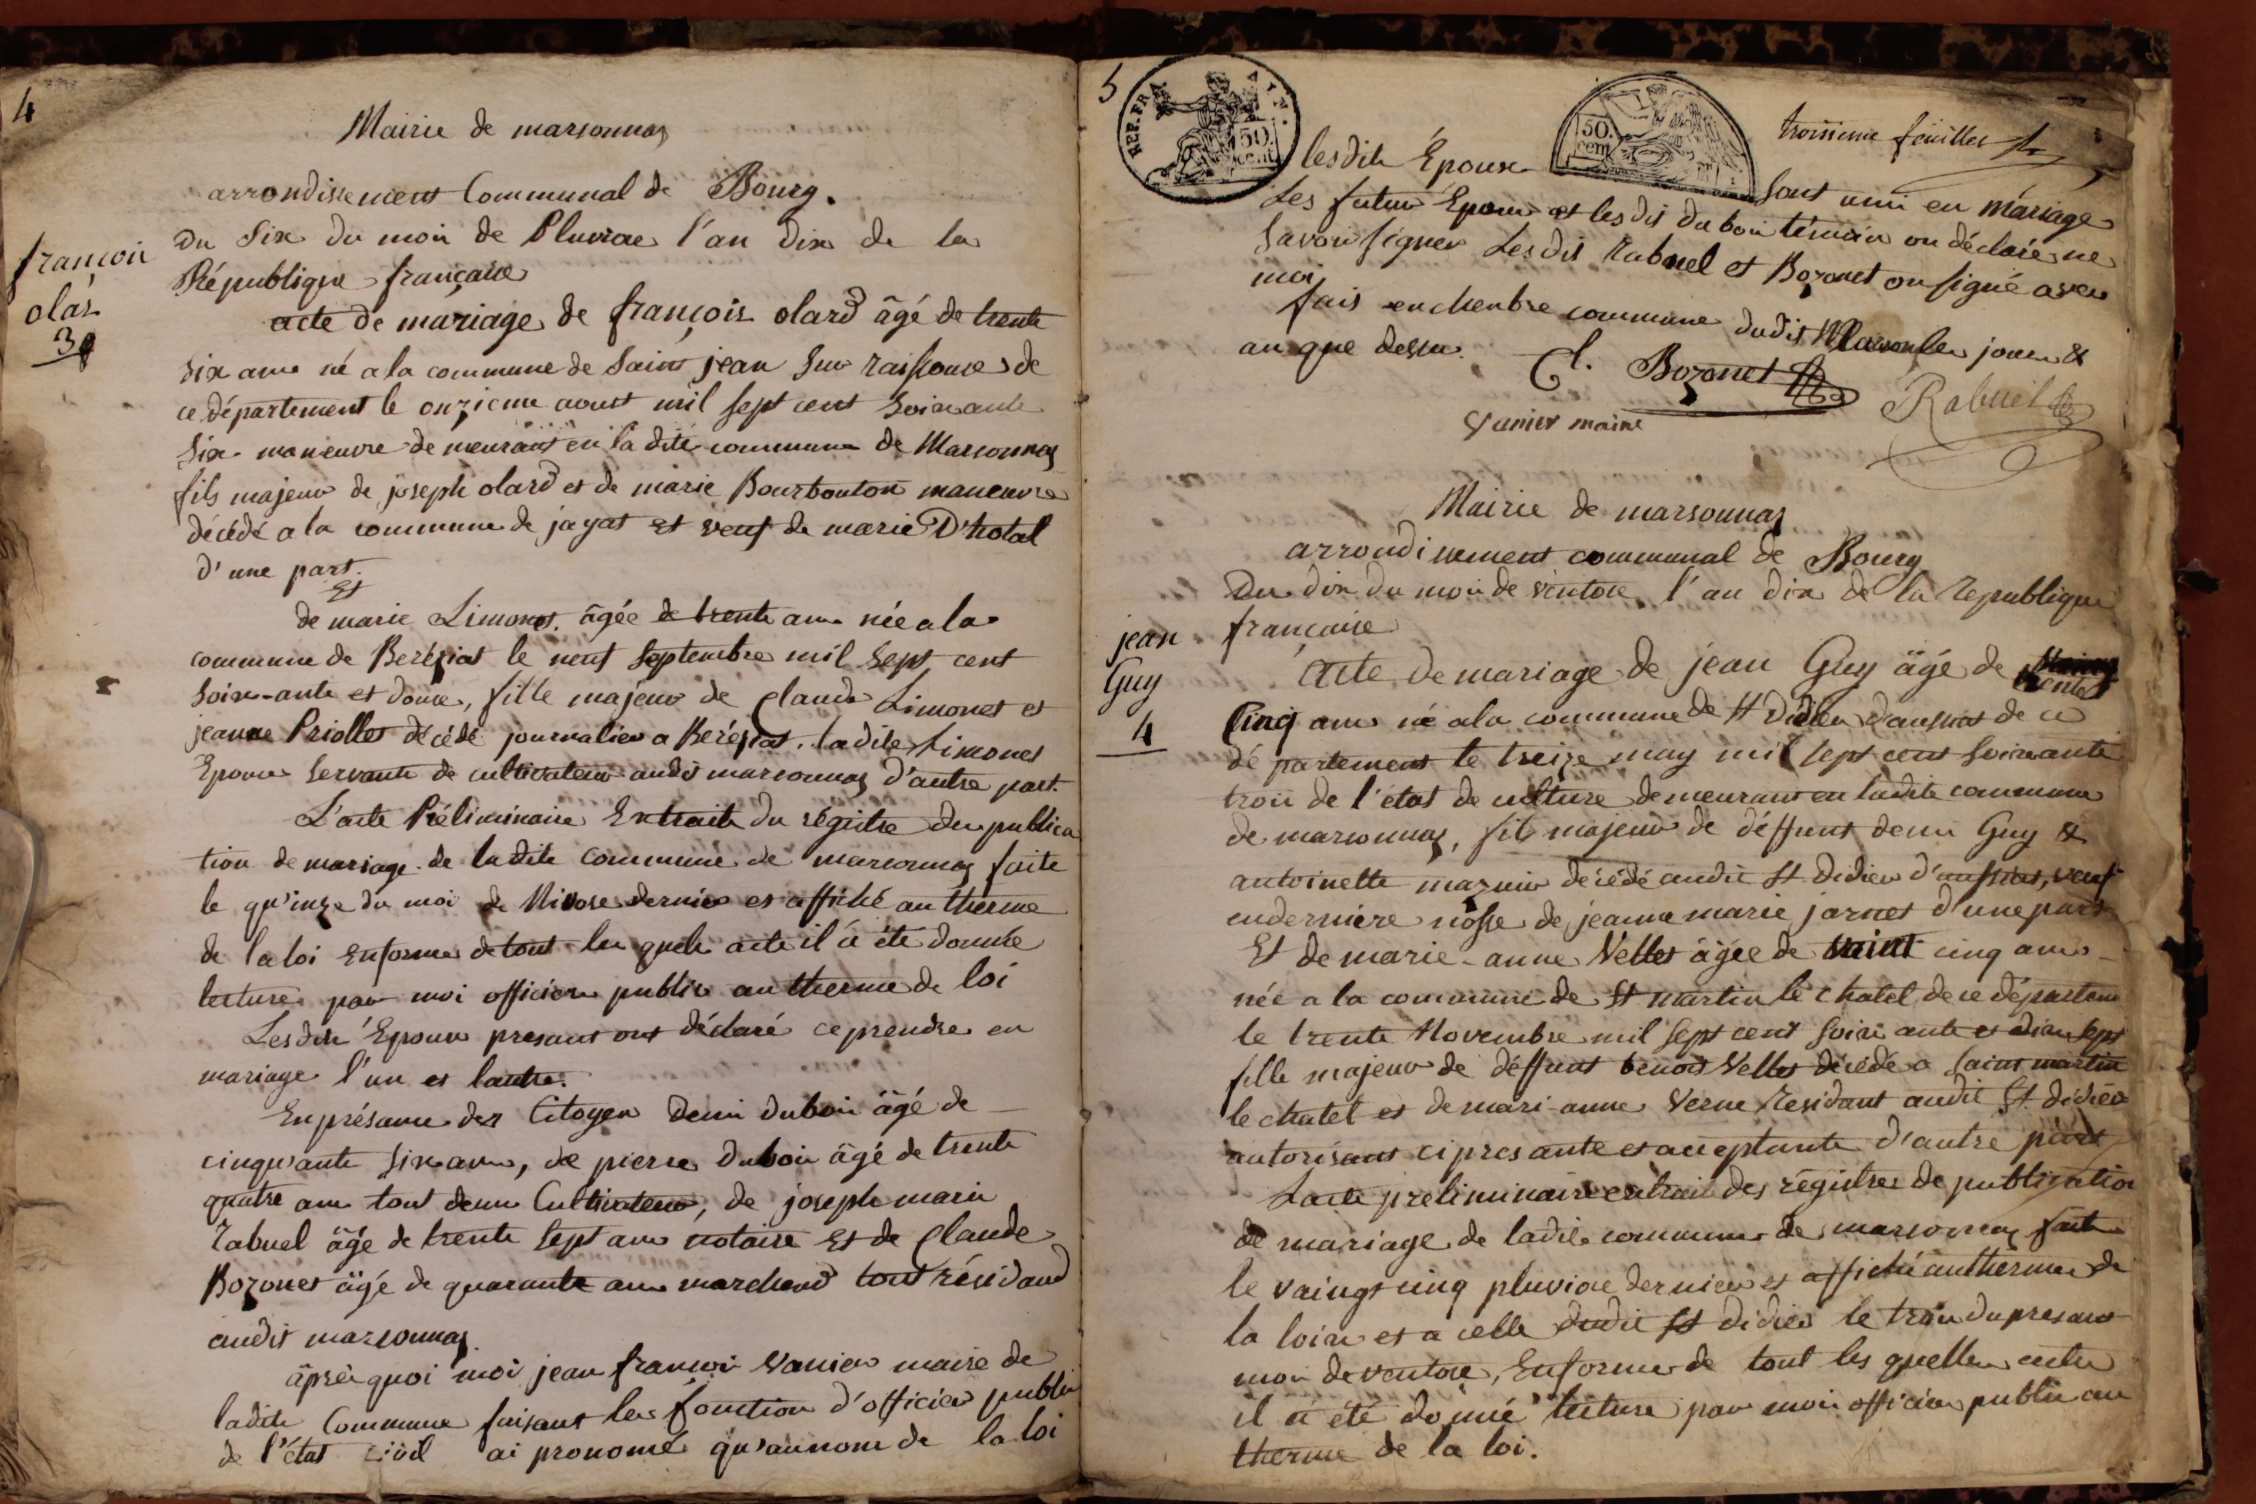 4
Mairie de marsonnas
arrondissement Communal de Bourg.
Du Six du moi de Pluviose l'an dix de la
République française
françoi
olar
3
acte de mariage de françois olard âgé de trente
six ans né a la commune de Saint jean Sur raissouse de
ce département le onzieme aoust mil sept cent Soixante
Six manœuvre demeurant en la dite commune de Marsonnas
fils majeur de joseph olard et de marie Bourbouton maneuvre
décédé a la commune de jayat et veuf de marie D'hotal
d'une part.
Et
de marie Limonet. âgée de trente ans née a la
commune de Beréziat le neuf Septembre mil Sept cent
Soixante et douze, fille majeur de Claude Limonet et
jeanne Priollet décédé journalier a Beréziat. ladite Limonet
Epouse Servante de cultivateur audit marsonnas d'autre part.
L'acte Préliminaire Extraite du régistre du publica
tion de mariage de ladite commune de marsonnas faite
le qu'inze du moi de Nivose dernier et affiché au therme
de la loi Enforme de tout les quels acte il a été donnée
lecture par moi officier public au therme de loi
Lesdits Epoux presant ont déclaré ce prendre en
mariage l'un et lautre.
En présance des Citoyen Deni duboi âgé de
cinqu'ante Six ans, de pierre duboi âgé de trente
quatre ans tout deux Cultivateur, de joseph marie
rabuel âgé de trente Sept ans notaire Et de Claude
Bozonet âgé de quarante ans marchand tout résidand
audit marsonnas
âprés quoi moi jean francoi vanier maire de
ladite Commune faisant les fonction d'officier public
de l'état civil ai prononcé qu'aunom de la loi
5
REP. FRA.
50.
cent
50.
cent
troisieme feuillet
lesdits Époux
Sont uni en máriage
Les futur Epoux et les dit duboi témoin on déclaré ne
Savoir Signer Les dit rabuel et Bozonet on signé avec
moi
fait en chenbre commune dudit Marsonnas les jour &
an que dessu.
Cl. Bozonet
Rabuel
vanier maire
Mairie de marsonnas
arrondissement communal de Bourg
Du dix du moi de ventose l'an dix de la republique
française
jean
Guy
4
acte de mariage de jean Guy âgé de trente
Cinq ans né a la commune de St Didier daussiat de ce
département le treize may mil sept cent Soixante
trois de l'état de culture demeurant en ladite commune
de marsonnas, fils majeur de déffunt deni Guy &
antoinette mazuir décédé audit St. Didier d'aussiat, veuf
enderniére nosse de jeanne marie jarnet d'une part
Et de marie-anne Vellet âgée de vaint cinq ans
née a la commune de St martin le chatel de ce départem
le trente Novembre mil sept cent soixante et dix sept
fille majeur de déffunt benoit Vellet décédé a Saint martin
le chatel et de mari-anne Verne résidant audit St. didier
autorisant cipresante et acceptante d'autre part
Lacte preliminaire extrait des régistres de publication
de mariage de ladite commune de marsonnas faite
le vaingt cinq pluviose dernier et affiché autherme de
la loix et a celle dudit St didier le trois du presant
moi de ventose, Enforme de tout les quelles actes
il a été donné lecture par moi officier public au
therme de la loi.